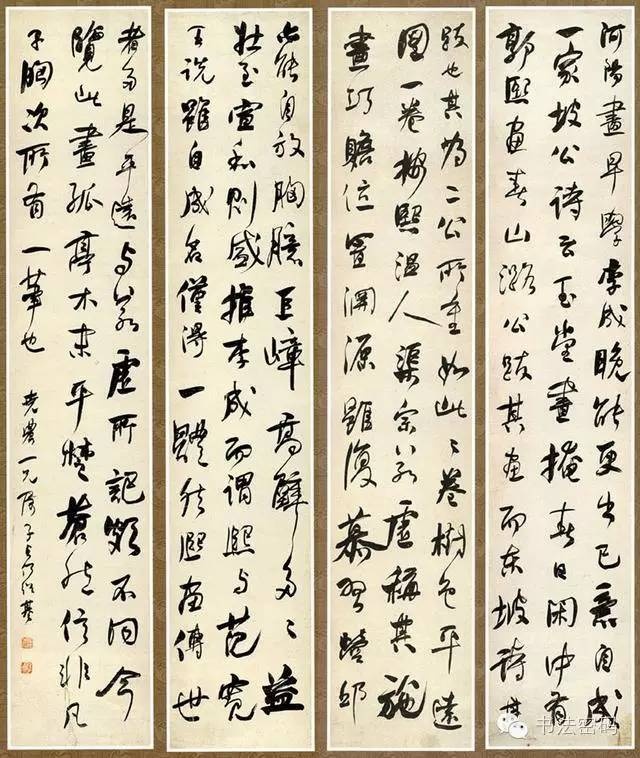 河陽畫早學李成晚能更出己意自成
一家坡公詩云玉堂晝掩春日閑中有
郭熙畫春山潞公跋其畫而東坡詩其
跋也其為二公所重如此此卷樹色平遠
圖一卷按熙溫人若虛稱其施
畫巧贍位置淵源雖復慕營邱
亦能自放胸臆巨嶂高壁多多益
壯至宣和則盛推李成而謂熙與范寬
王說雖自成名僅得一體然熙畫傳世
者多是平遠與若虛所記頗不同今
覽此畫孤亭木末平楚蒼然信非凡
子胸次所有一筆也
堯農一兄屬子貞何紹基
书法密码